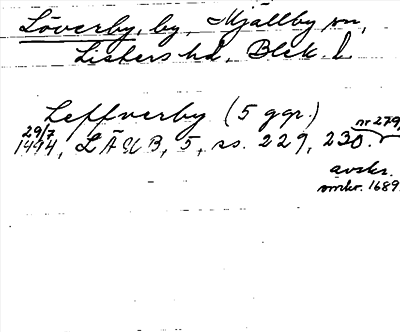 Löverby, by, Mjällby sn,
Listers hd, Blek. l.
Leffverby (5 ggr.)
29/7 1494, LÄSB, 5, ss. 229, 230. nr 279,
avskr.
omkr. 1689